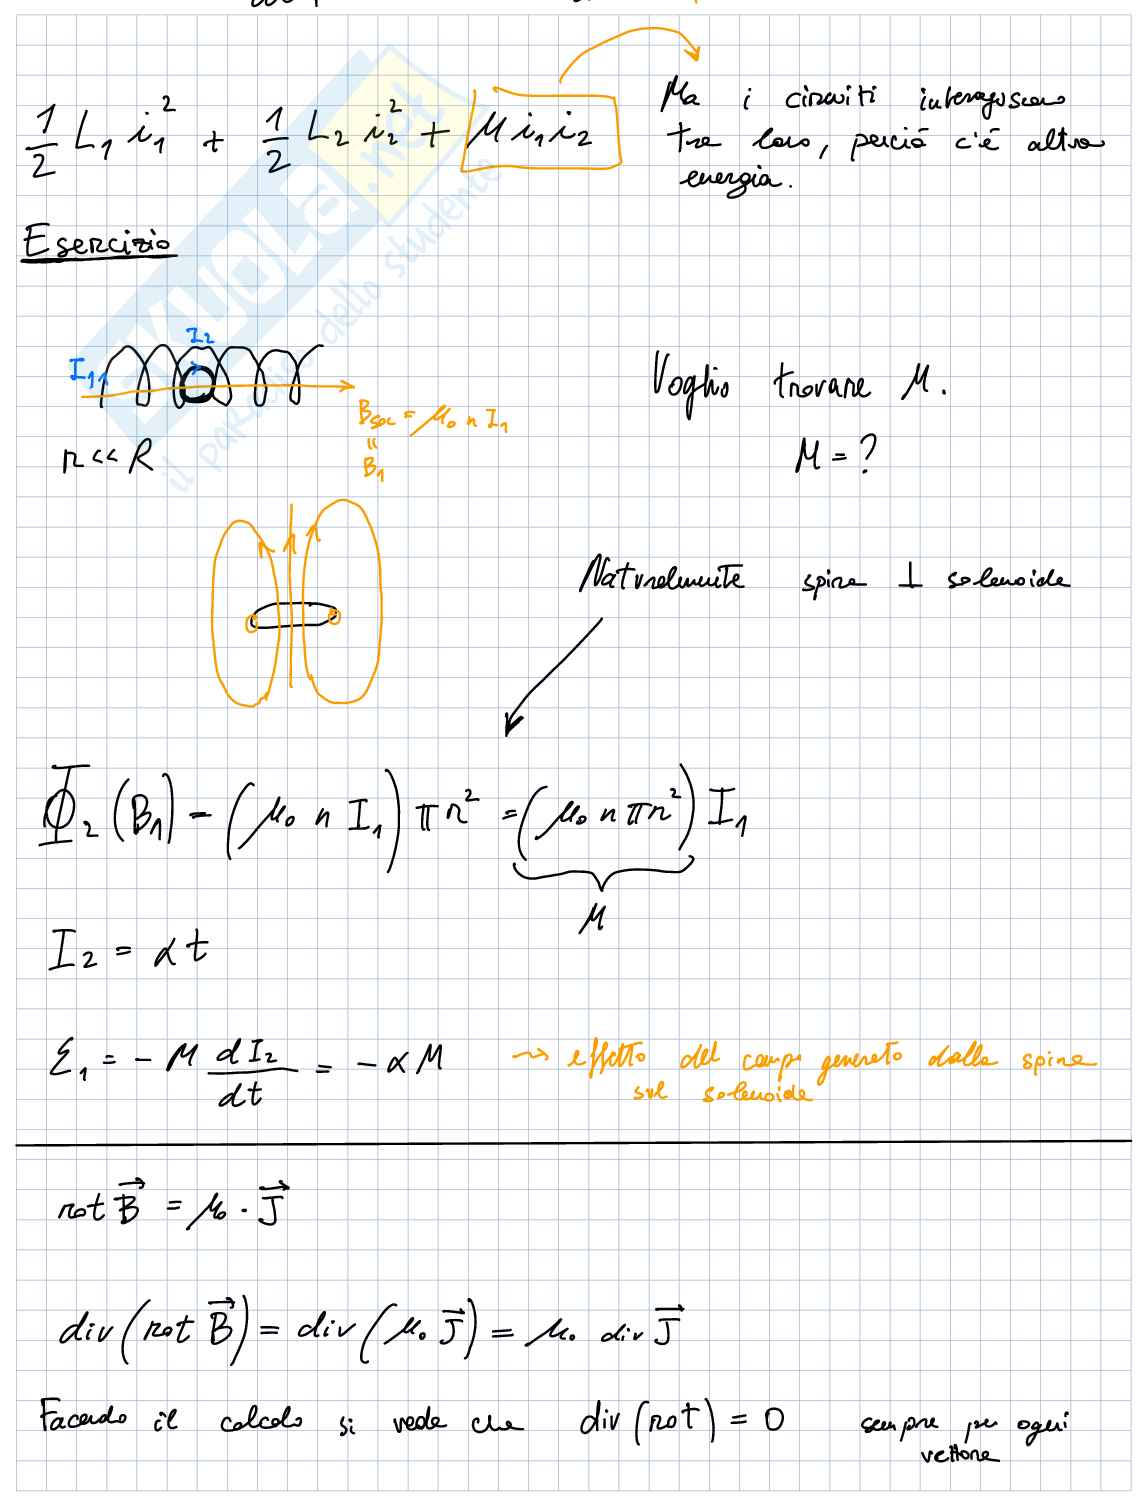 ½ L₁ i₁² + ½ L₂ i₂² + M i₁ i₂
Ma i circuiti interagiscono
tra loro, perciò c'è altra
energia.
Esercizio
I₂
I₁
B_sol = μ₀ n I₁
=
B₁
r << R
Voglio trovare M.
M = ?
Naturalmente spira ⊥ solenoide
Φ₂ (B₁) = (μ₀ n I₁) π r² = (μ₀ n π r²) I₁
M
I₂ = α t
Ɛ₁ = - M dI₂/dt = - α M
~> effetto del campo generato dalla spira
sul solenoide
rot B⃗ = μ₀ · J⃗
div (rot B⃗) = div (μ₀ J⃗) = μ₀ div J⃗
Facendo il calcolo si vede che div (rot) = 0 sempre per ogni
vettore
SKUOLA.net
il paradiso dello studente